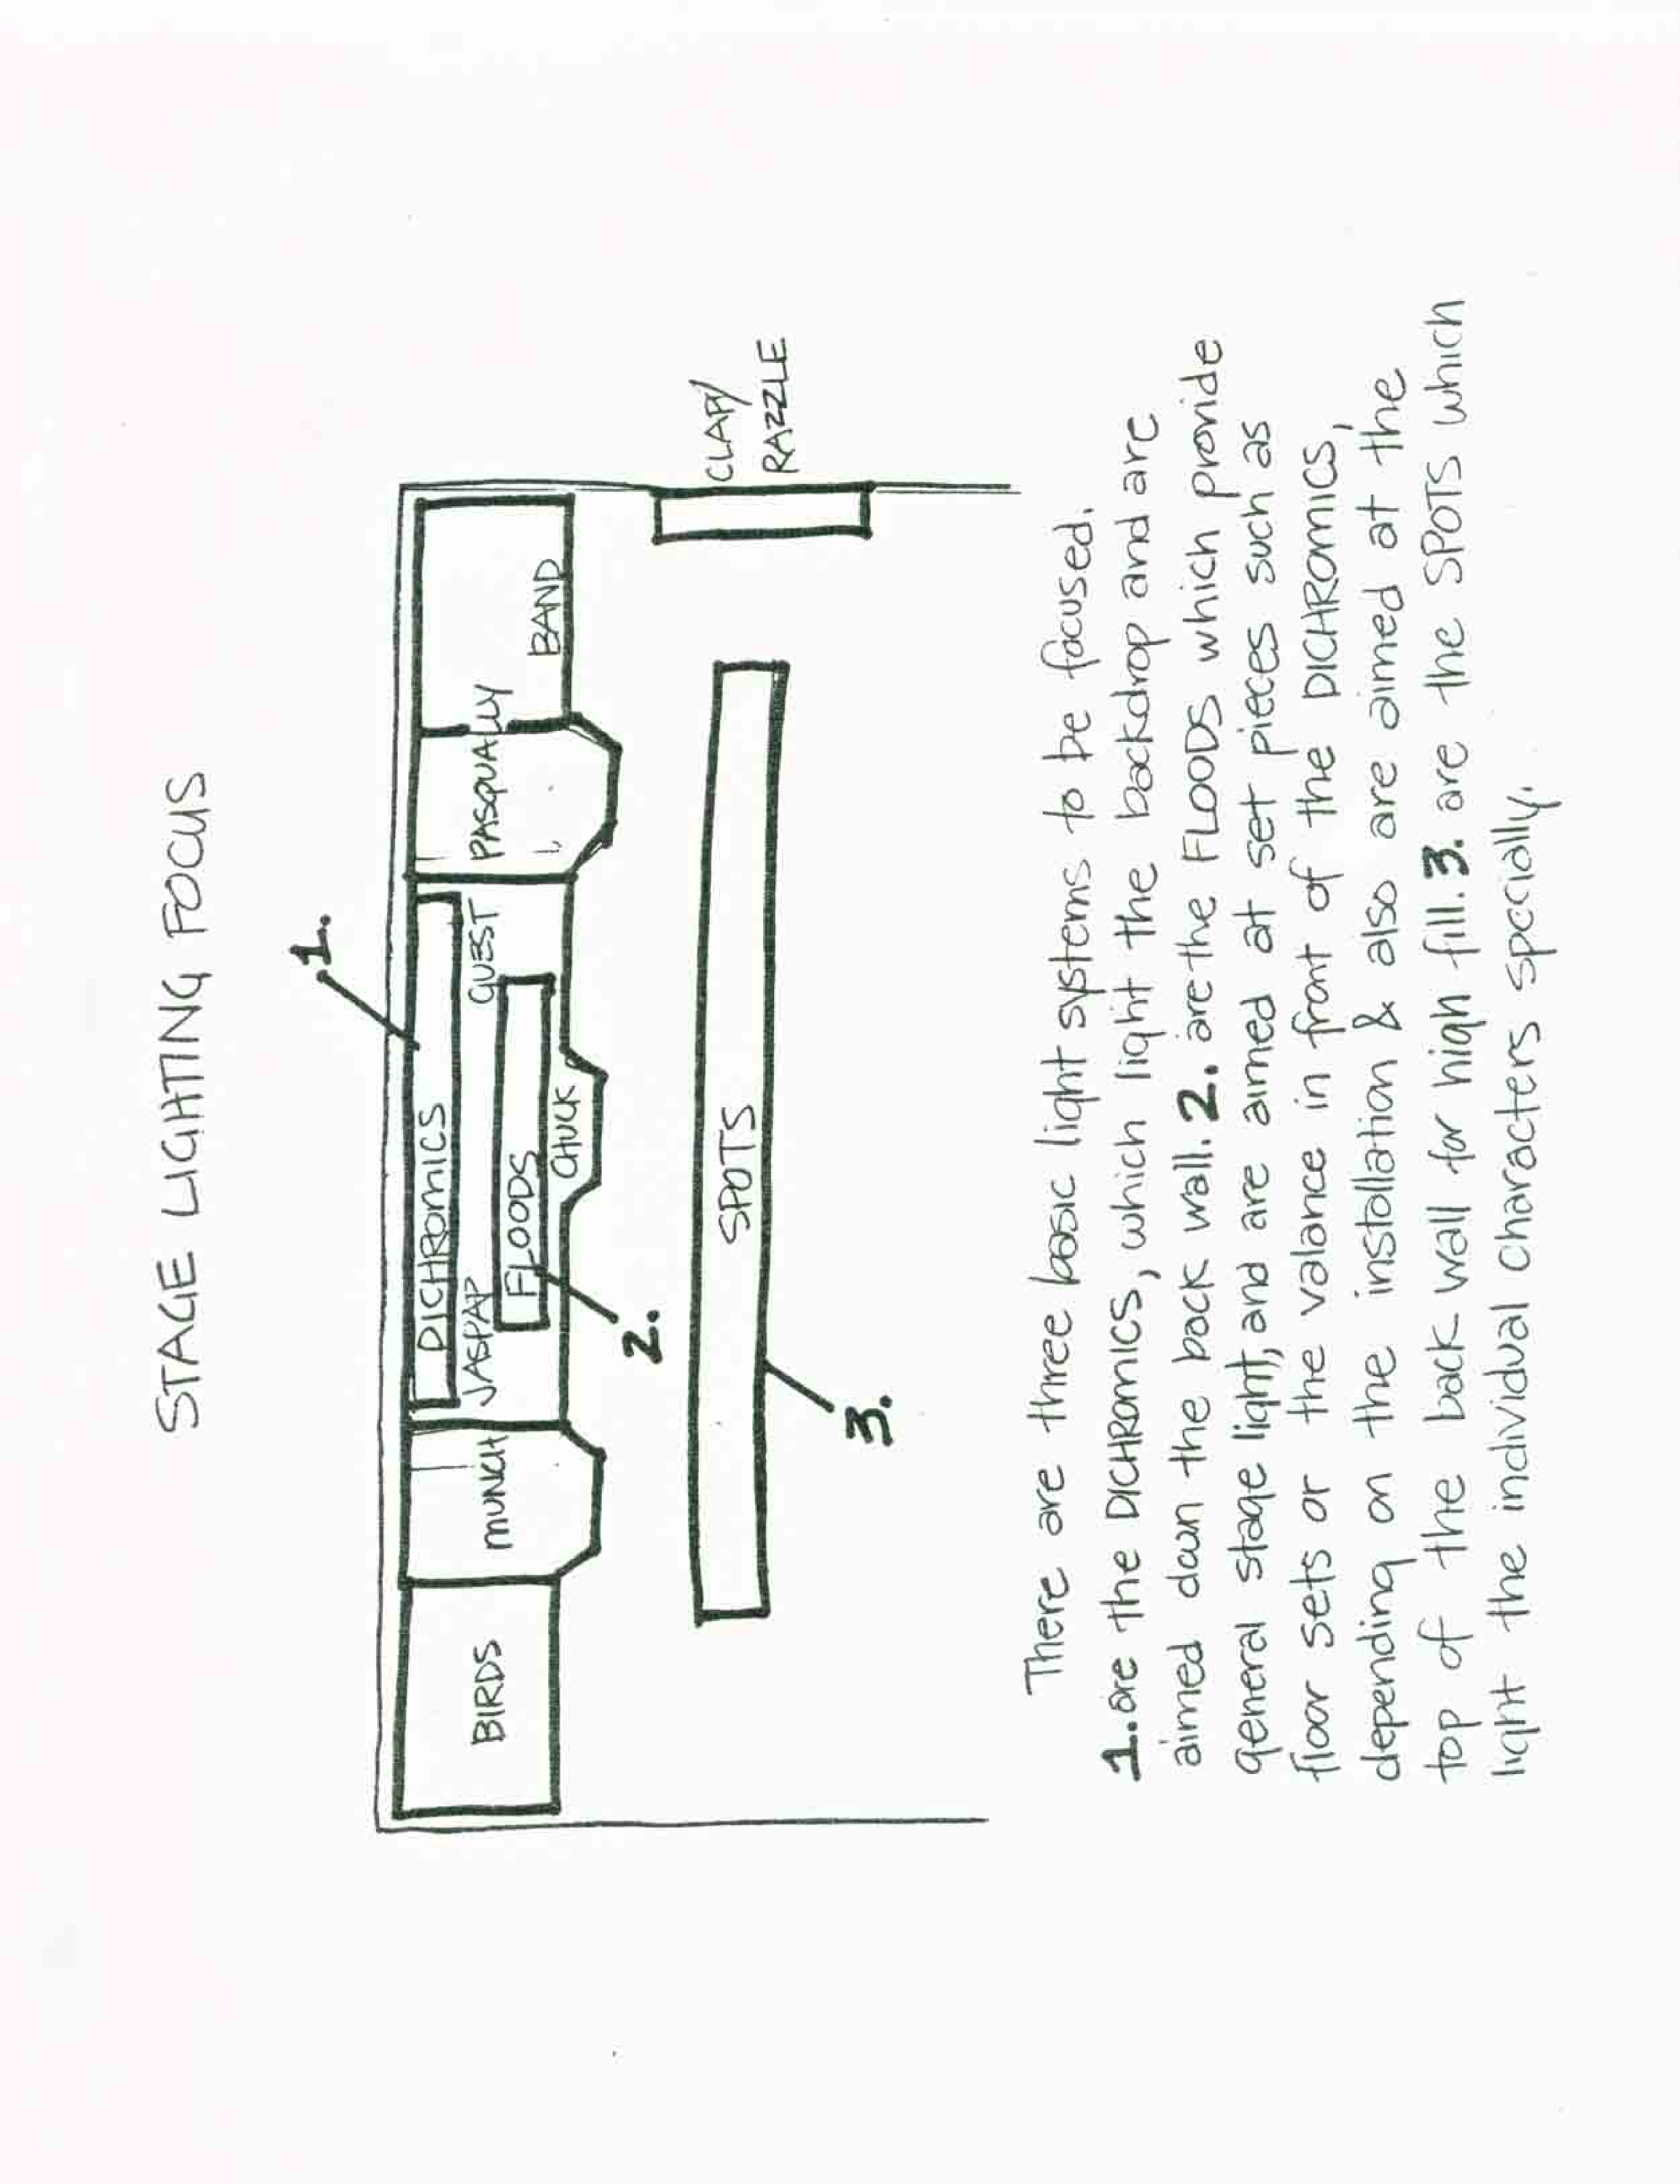 STAGE LIGHTING FOCUS
1.
DICHROMICS
JASPAP
GUEST
FLOODS
CHUCK
BIRDS
MUNCH
PASQUALLY
BAND
2.
SPOTS
3.
CLAP/
RAZZLE
There are three basic light systems to be focused.
1. are the DICHROMICS, which light the backdrop and are
aimed down the back wall. 2. are the FLOODS which provide
general stage light, and are aimed at set pieces such as
floor sets or the valance in front of the DICHROMICS,
depending on the installation & also are aimed at the
top of the back wall for high fill. 3. are the SPOTS which
light the individual characters specially.